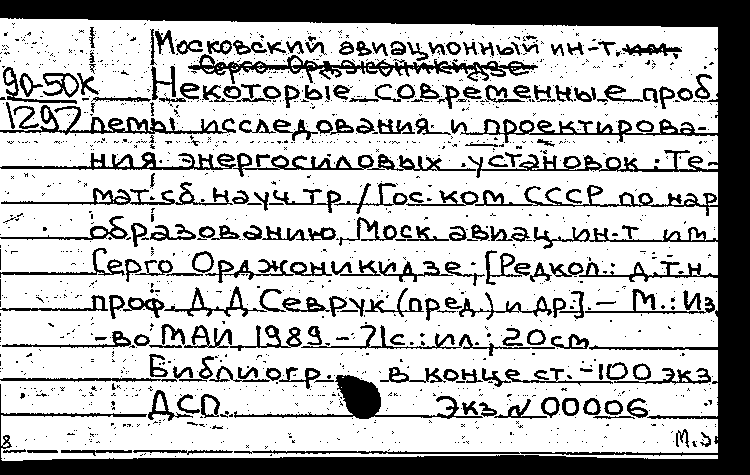 Московский авиационный ин-т. им.
Серго Орджоникидзе
90-50К
1297
Некоторые современные проб
лемы исследования и проектирова-
ния энергосиловых установок: Те-
мат. сб. науч. тр. / Гос. ком. СССР по нар
образованию, Моск. авиац. ин-т им.
Серго Орджоникидзе; [Редкол.: д.т.н.
проф. Д.Д. Севрук (пред.) и др.]. – М.: Из
-во МАИ, 1989. – 71с.: ил.; 20см.
Библиогр. в конце ст. – 100 экз.
ДСП. Экз № 00006
8